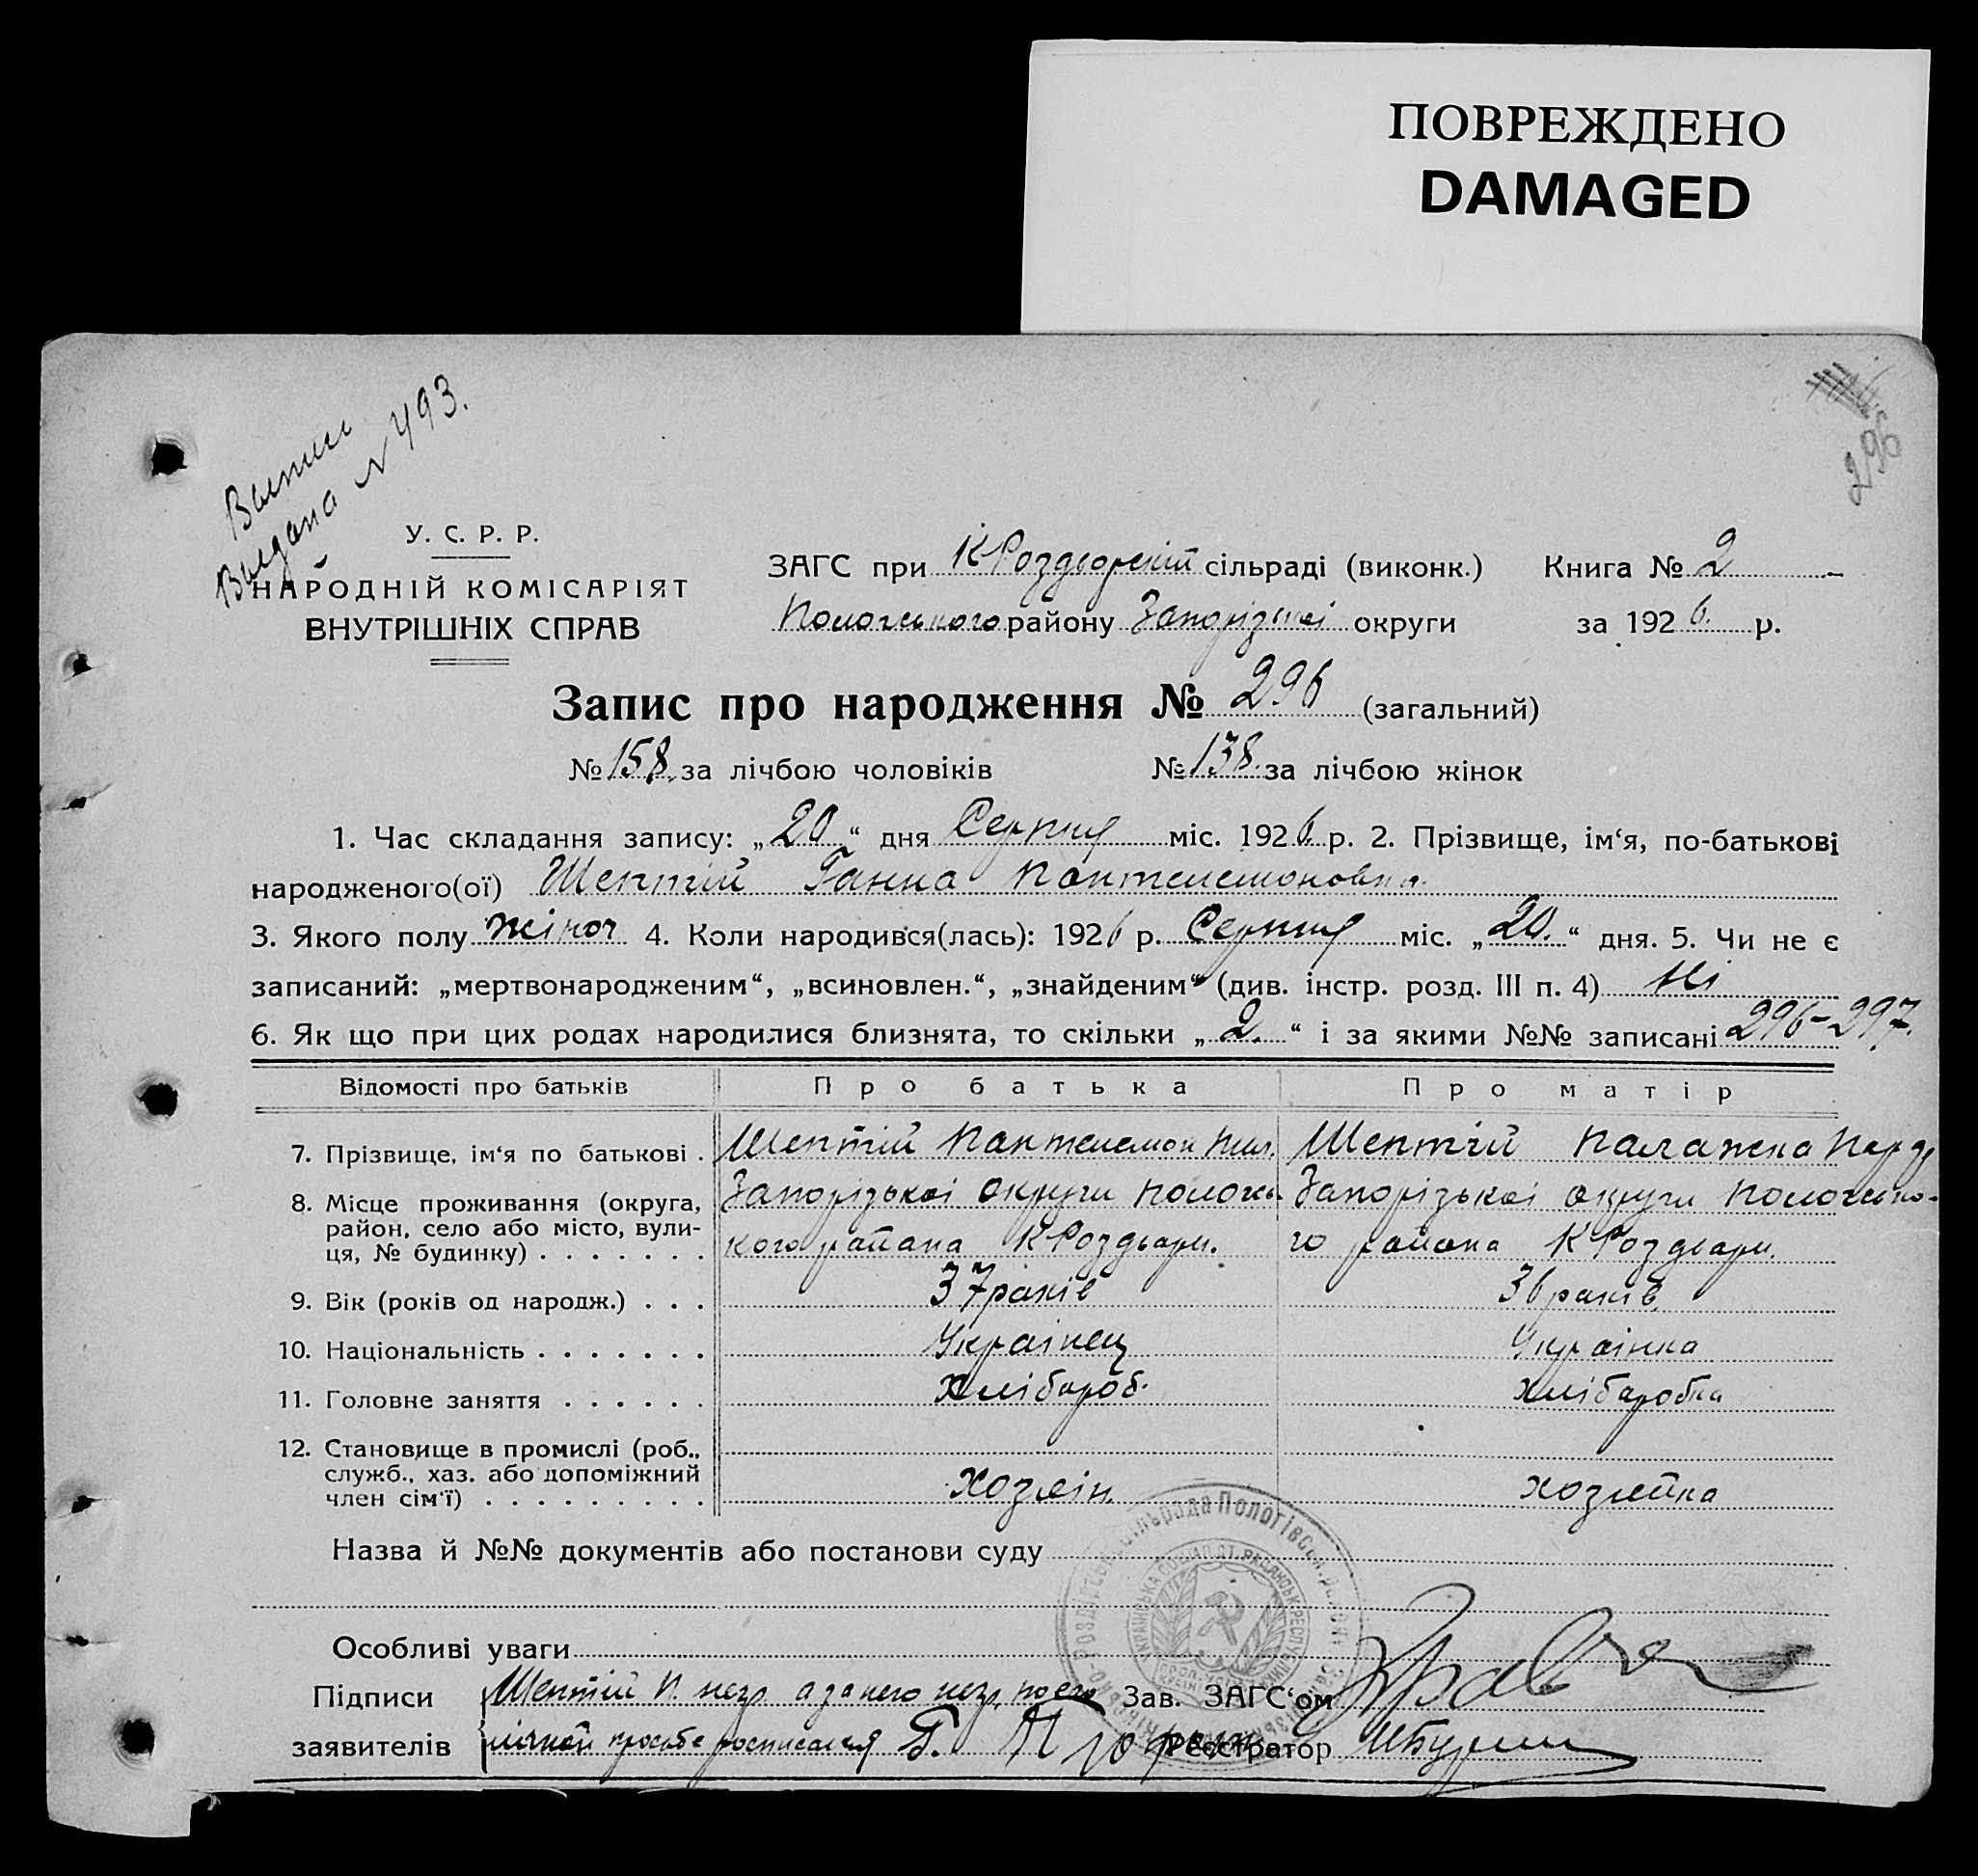 ПОВРЕЖДЕНО
DAMAGED
296
Выпись
Выдана N 493.
У. С. Р. Р.
НАРОДНІЙ КОМІСАРІЯТ
ВНУТРІШНІХ СПРАВ
ЗАГС при К Роздорській сільраді (виконк.) Книга № 2
Пологського району Запорізької округи за 1926 р.
Запис про народження № 296 (загальний)
№ 158. за лічбою чоловіків № 138. за лічбою жінок
1. Час складання запису: „20“ дня Серпня міс. 1926. р. 2. Прізвище, ім‘я, по-батькові
народженого(ої) Шептій Ганна Пантелемоновна.
3. Якого полу жіноч 4. Коли народився(лась): 1926 р. Серпня міс. „20.“ дня. 5. Чи не є
записаний: „мертвонародженим“, „всиновлен.“, „знайденим“ (див. інстр. розд. III п. 4) Ні
6. Як що при цих родах народилися близнята, то скільки „2.“ і за якими №№ записані 296-297.
Відомості про батьків Про батька Про матір
7. Прізвище, ім‘я по батькові . Шептій Пантелемон Шептій Палажка
8. Місце проживання (округа, Запорізькоі округи пологсь- Запорізькоі округи пологсько-
район, село або місто, вули-
ця, № будинку) . . . . . . . кого района К Роздьари. го района К Роздьари.
9. Вік (років од народж.) . . . 37 раків 36 раків
10. Національність . . . . . . . Украінец Украінка
11. Головне заняття . . . . . . Хлібароб. хлібаробка
12. Становище в промислі (роб.,
служб., хаз. або допоміжний
член сім‘ї) . . . . . . . . . Хозяін. хозяйка
Назва й №№ документів або постанови суду
Особливі уваги
Підписи Шептій П. негр. а за него негр. по его Зав. ЗАГС‘ом
заявителів личной просьбе росписался Реєстратор